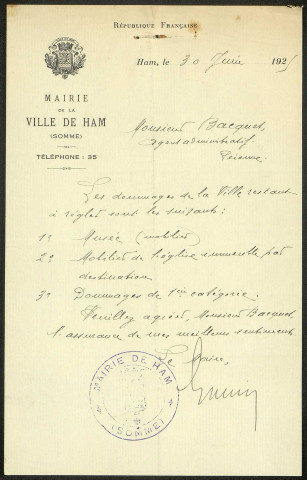 RÉPUBLIQUE FRANÇAISE
Ham, le 30 Juin 1925
MAIRIE
DE LA
VILLE DE HAM
(SOMME)
TÉLÉPHONE : 35
Monsieur Bacquet,
agent administratif
Péronne.
Les dommages de la Ville restant
à régler sont les suivants :
1º Musée (mobilier)
2º Mobilier de l'église immeuble par
destination.
3º Dommages de 1ère catégorie.
Veuillez agréer, Monsieur Bacquet,
l'assurance de mes meilleurs sentiments.
Le Maire,
MAIRIE DE HAM
(SOMME)